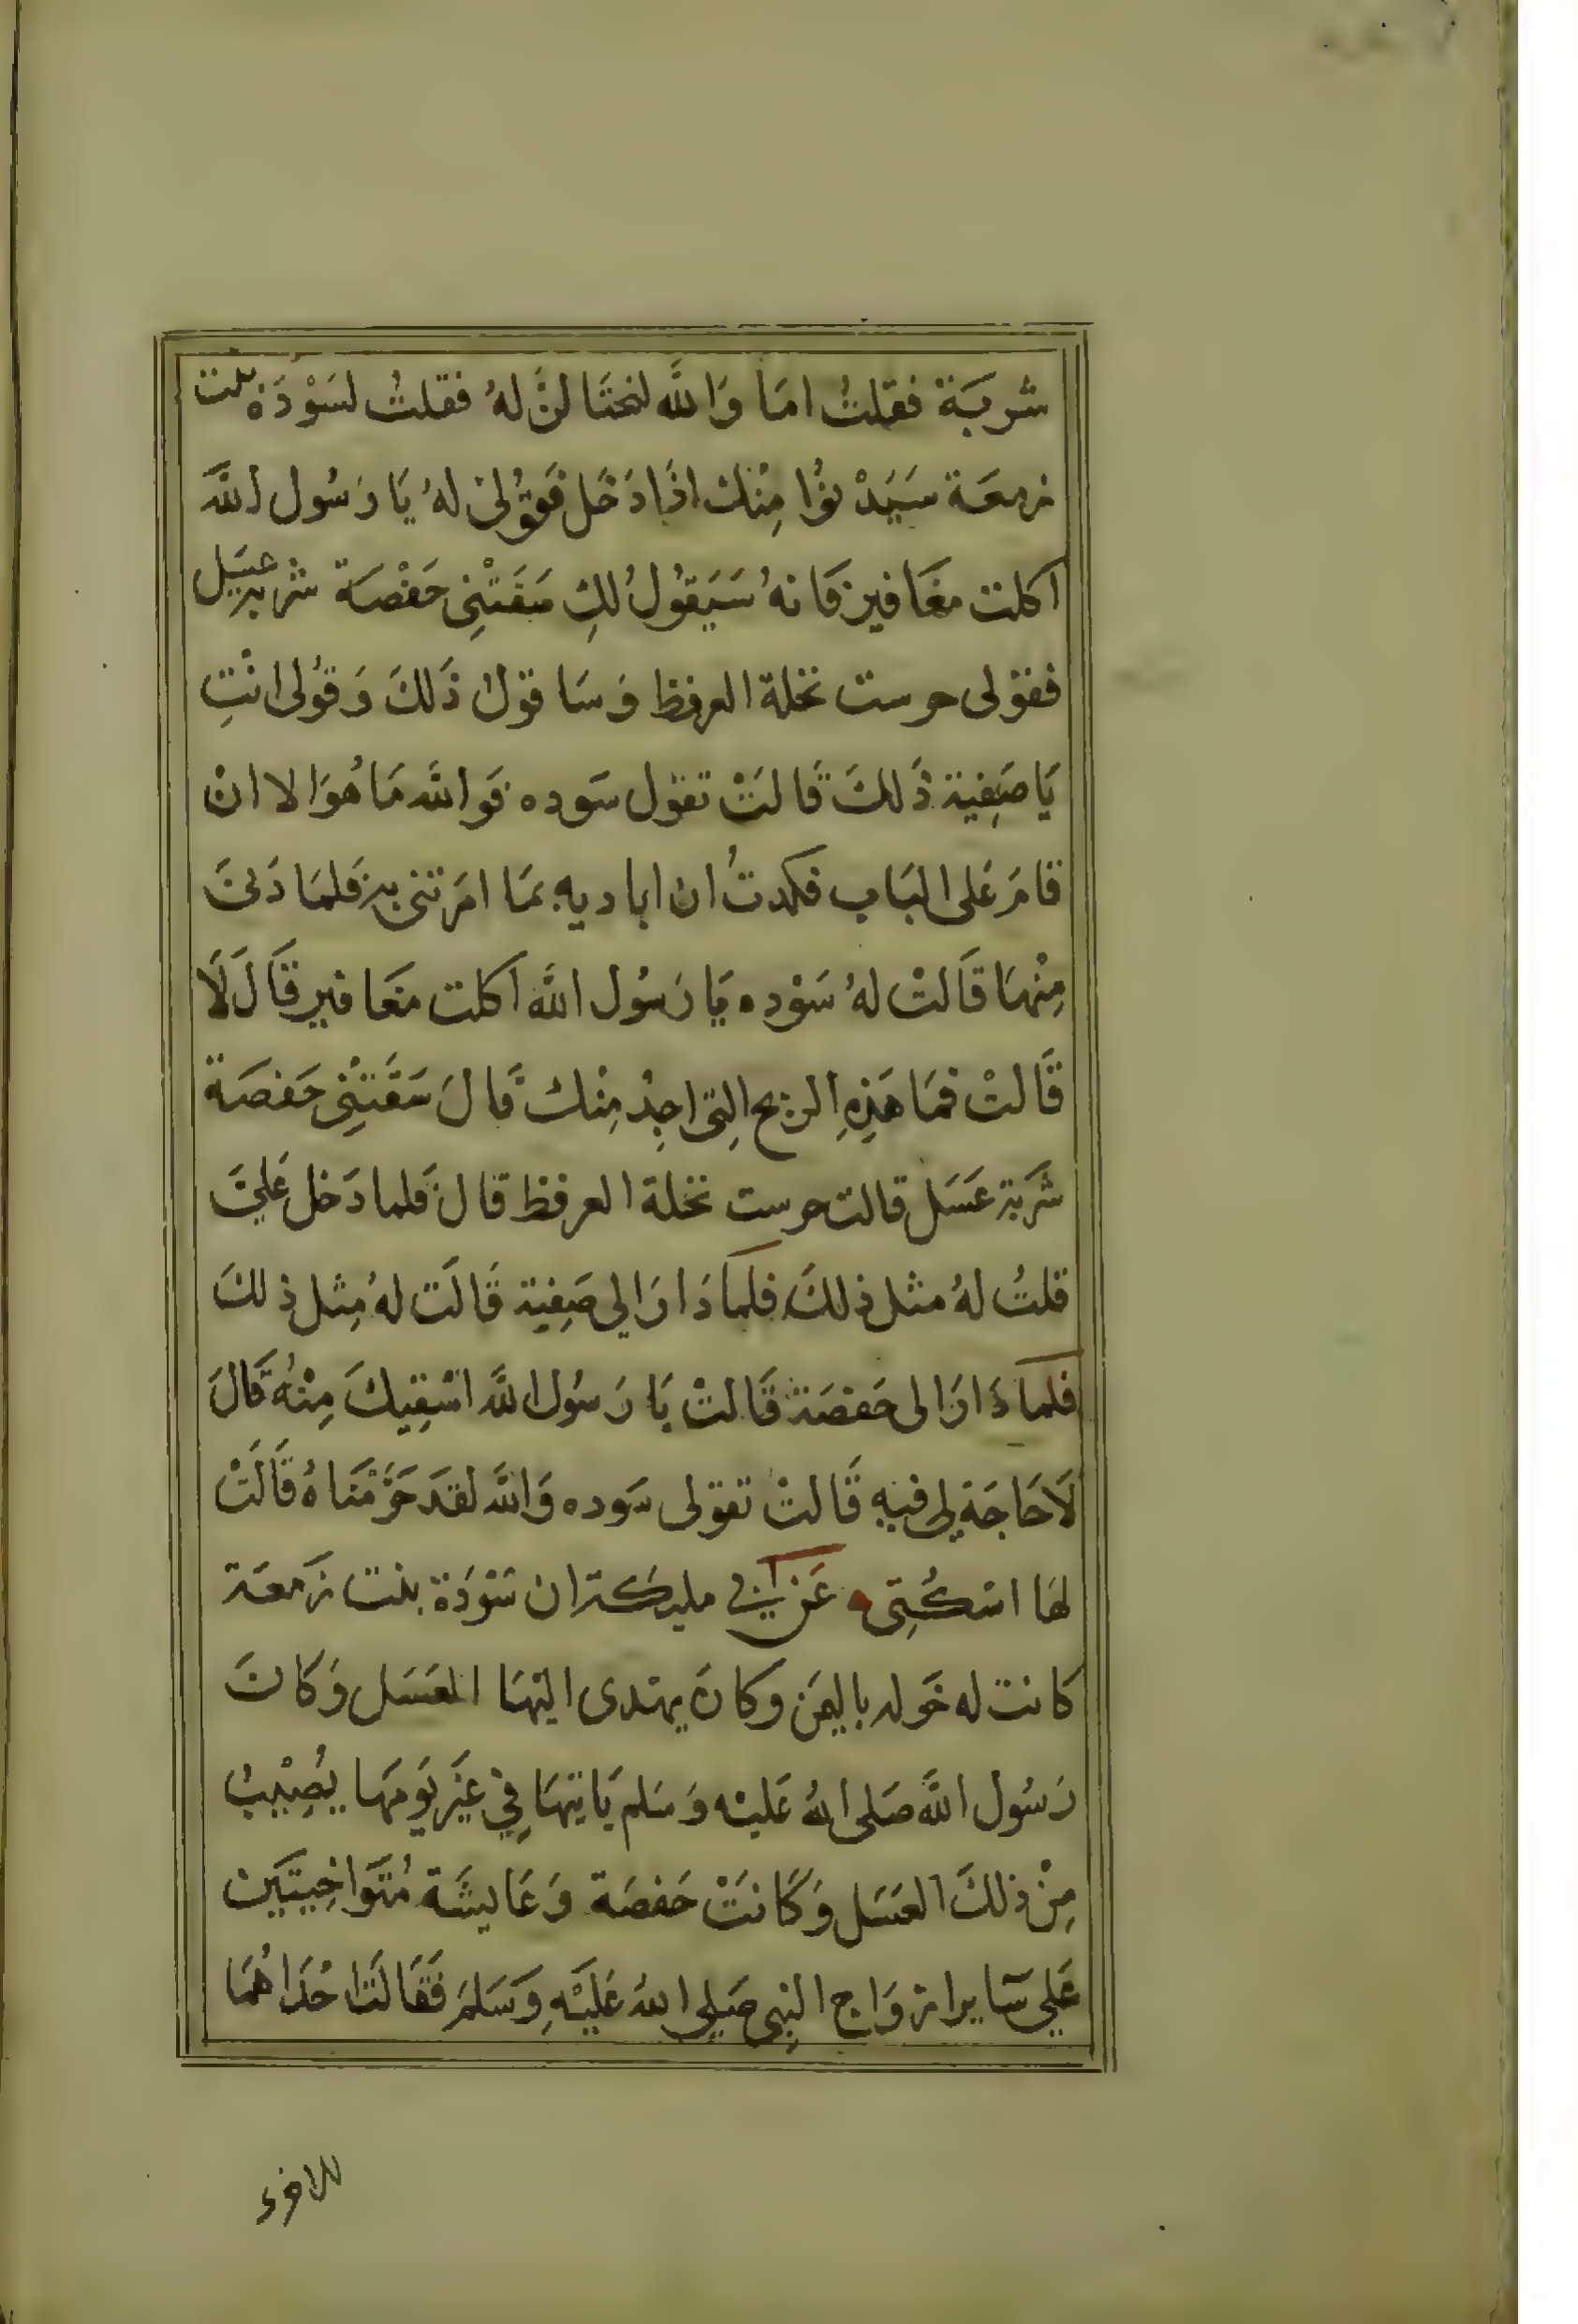 شربة فقلتُ امَا وَالله لنحتَالنَّ لهُ فقلتُ لسَوْدَة بنت
زمعَة سَيَدْنوُا مِنْك اذَا دَخَل فَقوُلىْ لهُ يَا رَسُول الله
اكلت مغَافيرَ فَانهُ سَيَقوُلُ لكِ سَقَتْنِى حَفْصَة شربة عسَل
فقولى جرست نخلة العرفظ وَسَاقولُ ذَلكَ وَقوُلى انْتِ
يَا صَفِية ذَلكَ قَالتْ تقول سَوده فوَالله مَا هُوَ الا انْ
قامَ عَلى البَاب فكدتُ ان اباديه بمَا امَرَتنى به فلمَا دَنىَ
مِنْهَا قَالتْ لهُ سَوْده يَا رَسُول الله اكلت مغَافير قَالَ لَا
قَالتْ فمَا هَذِهِ الريح التِى اجِدُ مِنْك قَالَ سَقَتْنِى حَفصَة
شَربة عَسَل قالت جرست نخلة العرفظ قال فَلما دَخل عَليَّ
قلتُ لهُ مثل ذلكَ فلمَا دَارَ الى صَفِية قَالَت لهُ مِثل ذلكَ
فلما دَارَ الى حَفصَة قَالتْ يَا رَسُول الله اسْقِيكَ مِنْهُ قَالَ
لَا حَاجَة لِى فيْهِ قَالتْ تقولى سَوده وَالله لقدَ حَرَّمْنَاهُ قَالَتْ
لهَا اسْكُتِى عَن ابى مليكة ان سَوْدَة بنت زَمعَة
كانت له خَوله باليمَن وكانَ يهتدى اليْهَا العسَل وَكانَ
رَسُول الله صَلى الله عَليْه وَسَلم يَاتيهَا فِي غَيَر يَومهَا يُصِيْبُ
مِنْ ذلكَ العَسَل وَكَانَتْ حَفصَة وَعَايشَة مُتَوَاخِيتَين
عَلي سَاير ازوَاج النبِى صَلي الله عَليْهِ وَسَلمَ فَقَالَتْ احْدَاهُمَا
للاخرى